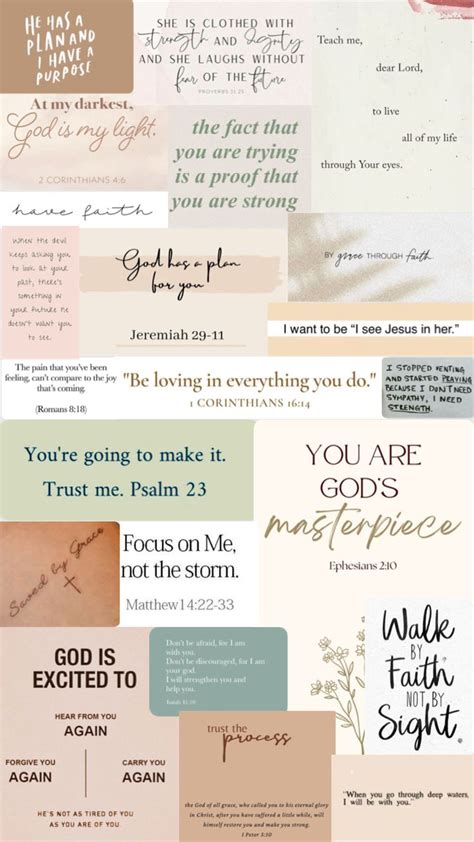 HE HAS A
PLAN AND
I HAVE A
PURPOSE
SHE IS CLOTHED WITH
strength AND dignity
AND SHE LAUGHS WITHOUT
fear OF THE future
PROVERBS 31:25
Teach me,
dear Lord,
to live
all of my life
through Your eyes.
At my darkest,
God is my light.
2 CORINTHIANS 4:6
the fact that
you are trying
is a proof that
you are strong
have faith
WHEN THE DEVIL
KEEPS ASKING YOU
TO LOOK AT YOUR
PAST, THERE'S
SOMETHING IN
YOUR FUTURE HE
DOESN'T WANT YOU
TO SEE.
God has a plan
for you
Jeremiah 29-11
BY grace THROUGH faith
I want to be “I see Jesus in her.”
The pain that you've been
feeling, can't compare to the joy
that's coming.
(Romans 8:18)
"Be loving in everything you do."
1 CORINTHIANS 16:14
I STOPPED VENTING
AND STARTED PRAYING
BECAUSE I DON'T NEED
SYMPATHY, I NEED
STRENGTH.
You're going to make it.
Trust me. Psalm 23
YOU ARE
GOD'S
masterpiece
Ephesians 2:10
Saved by Grace
Focus on Me,
not the storm.
Matthew 14:22-33
Don't be afraid, for I am
with you.
Don't be discouraged, for I am
your god.
I will strengthen you and
help you.
Isaiah 41:10
Walk
BY
Faith
NOT BY
Sight.
GOD IS
EXCITED TO
HEAR FROM YOU
AGAIN
FORGIVE YOU
AGAIN
CARRY YOU
AGAIN
HE'S NOT AS TIRED OF YOU
AS YOU ARE OF YOU.
trust the
process
the God of all grace, who called you to his eternal glory
in Christ, after you have suffered a little while, will
himself restore you and make you strong.
1 Peter 5:10
"When you go through deep waters,
I will be with you."